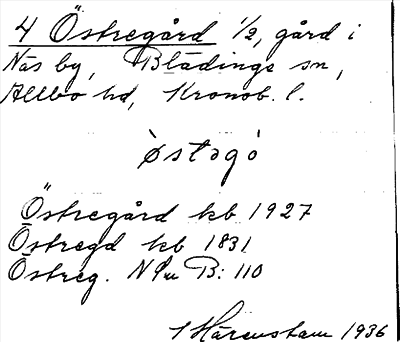 4 Östregård 1/2, gård i
Näs by, Blädinge sn,
Allbo hd, Kronob. l.
òstəgó
Östregård kb 1927
Östregd kb 1831
Östreg. B: 110
Härenstam 1936